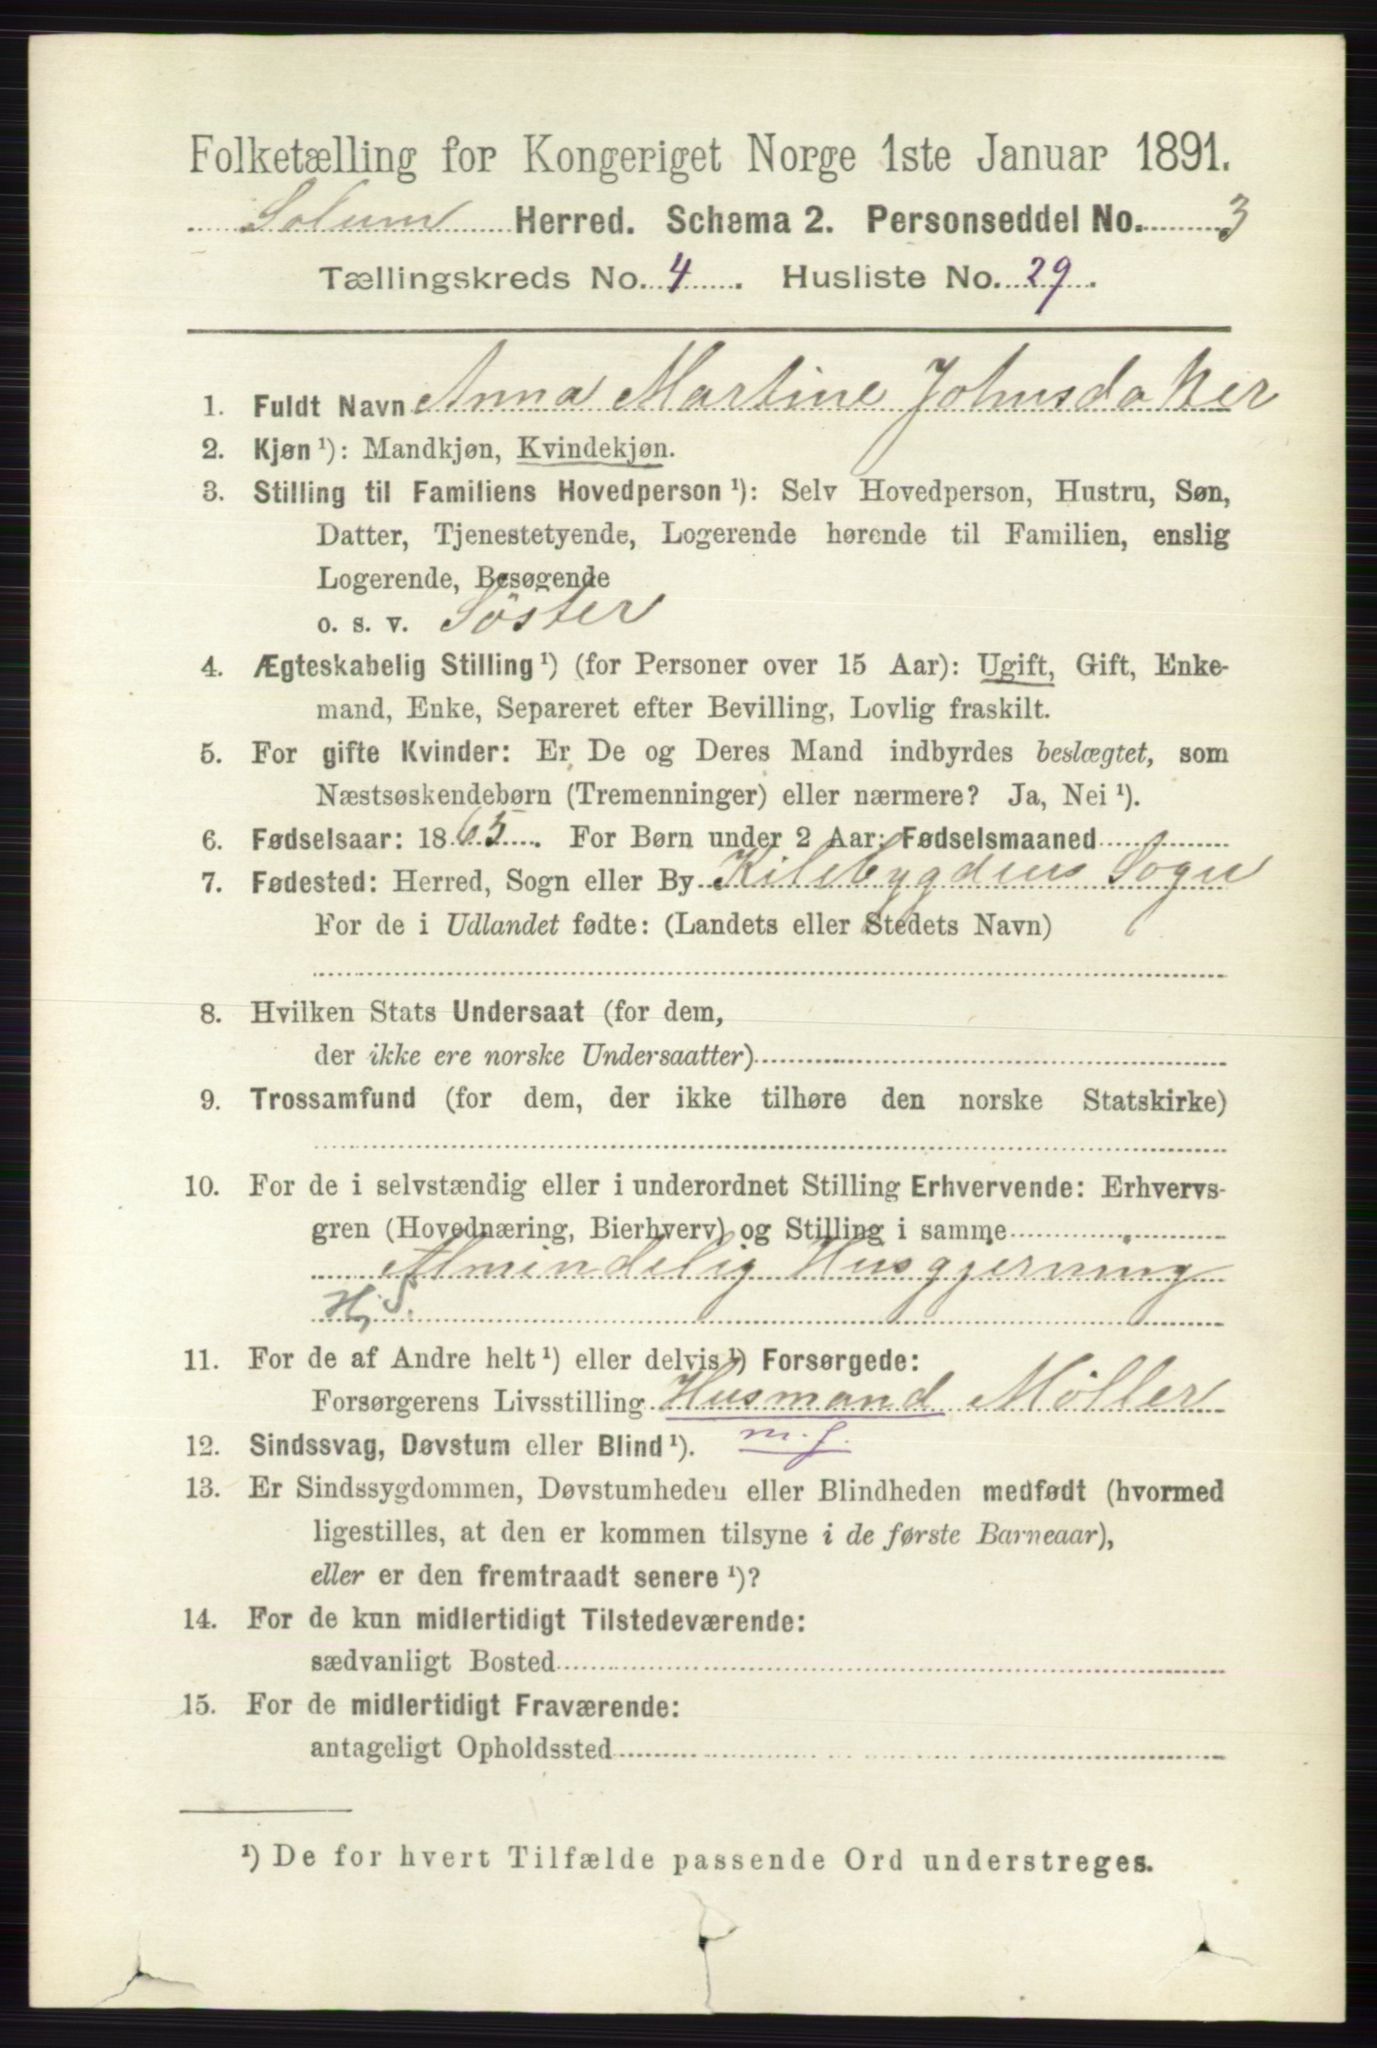 Folketælling for Kongeriget Norge 1ste Januar 1891.
Solum Herred. Schema 2. Personseddel No. 3
Tællingskreds No. 4. Husliste No. 29.
1. Fuldt Navn Anna Martine Johnsdatter
2. Kjøn ¹): Mandkjøn, Kvindekjøn.
3. Stilling til Familiens Hovedperson ¹): Selv Hovedperson, Hustru, Søn,
Datter, Tjenestetyende, Logerende hørende til Familien, enslig
Logerende, Besøgende
o. s. v. Söster
4. Ægteskabelig Stilling ¹) (for Personer over 15 Aar): Ugift, Gift, Enke-
mand, Enke, Separeret efter Bevilling, Lovlig fraskilt.
5. For gifte Kvinder: Er De og Deres Mand indbyrdes beslægtet, som
Næstsøskendebørn (Tremenninger) eller nærmere? Ja, Nei ¹).
6. Fødselsaar: 1865. For Børn under 2 Aar: Fødselsmaaned
7. Fødested: Herred, Sogn eller By Kilebygdens Sogn
For de i Udlandet fødte: (Landets eller Stedets Navn)
8. Hvilken Stats Undersaat (for dem,
der ikke ere norske Undersaatter)
9. Trossamfund (for dem, der ikke tilhøre den norske Statskirke)
10. For de i selvstændig eller i underordnet Stilling Erhvervende: Erhvervs-
gren (Hovednæring, Bierhverv) og Stilling i samme
Almindelig Husgjerning
H,S.
11. For de af Andre helt ¹) eller delvis ¹) Forsørgede:
Forsørgerens Livsstilling Husmand Möller
m. j.
12. Sindssvag, Døvstum eller Blind ¹).
13. Er Sindssygdommen, Døvstumheden eller Blindheden medfødt (hvormed
ligestilles, at den er kommen tilsyne i de første Barneaar),
eller er den fremtraadt senere ¹)?
14. For de kun midlertidigt Tilstedeværende:
sædvanligt Bosted
15. For de midlertidigt Fraværende:
antageligt Opholdssted
¹) De for hvert Tilfælde passende Ord understreges.